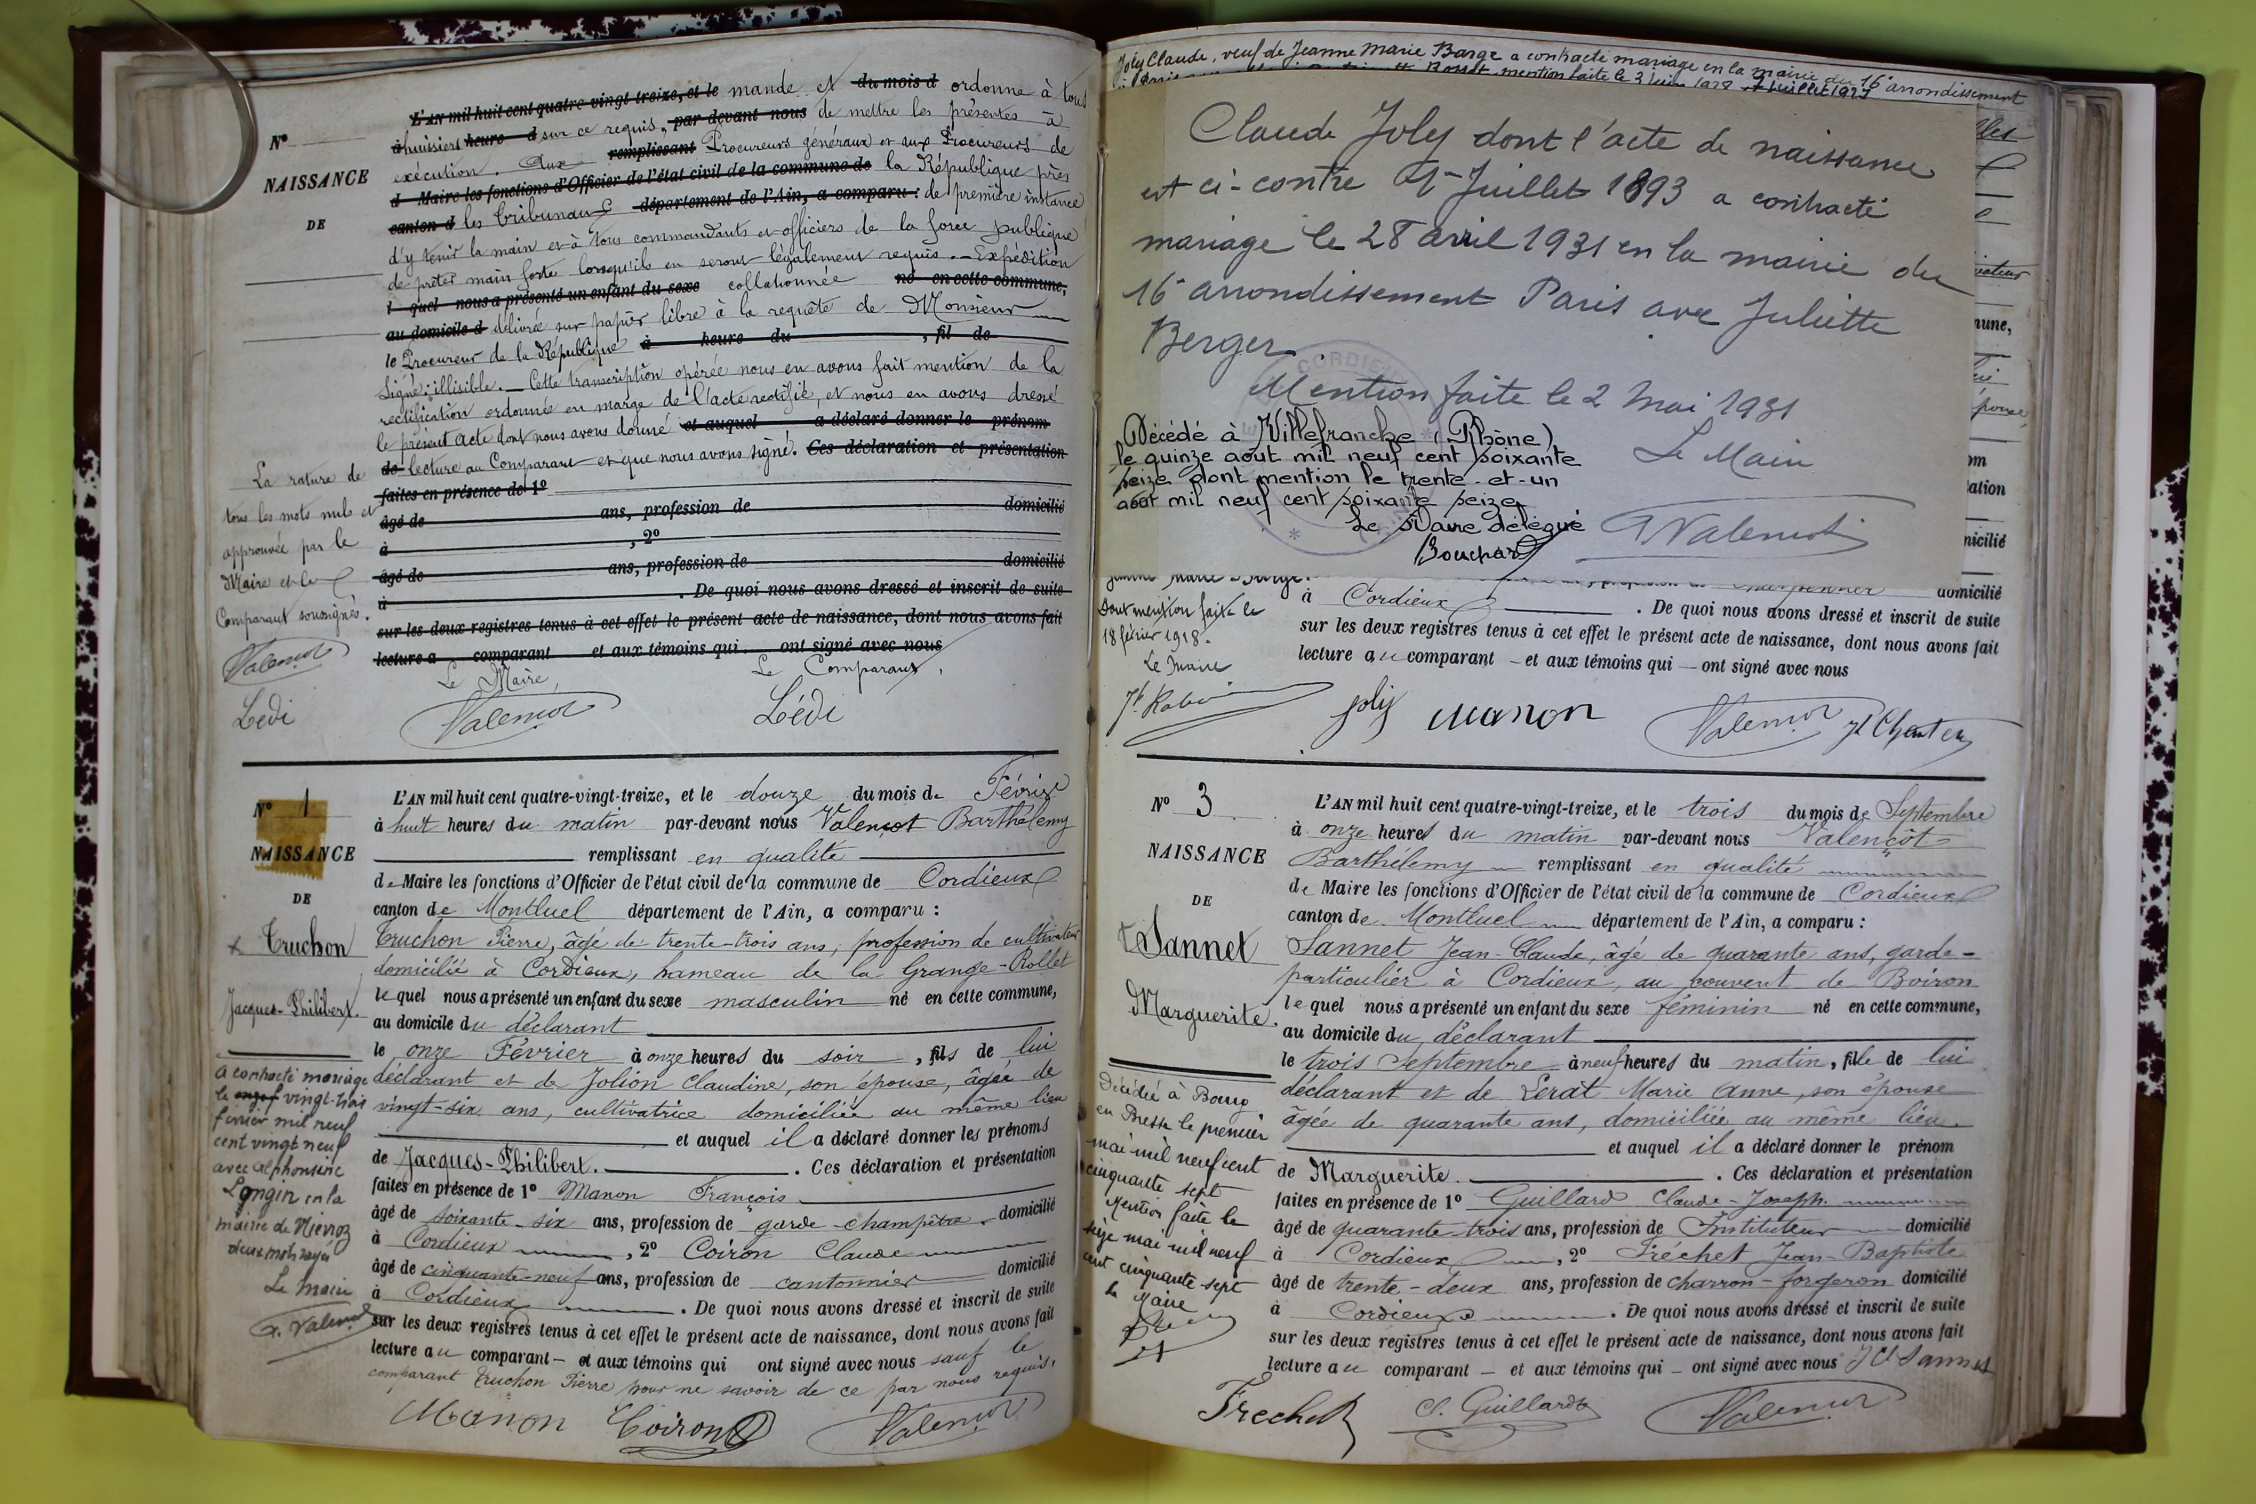 N°
NAISSANCE
DE
L'AN mil huit cent quatre-vingt-treize, et le mande et du mois d ordonne à tous
à huissiers heure d sur ce requis, par devant nous de mettre les présentes à
exécution. Aux remplissant Procureurs généraux et aux Procureurs de
d Maire les fonctions d'Officier de l'état civil de la commune de la République près
canton d les tribunaux département de l'Ain, a comparu : de première instance
d'y tenir la main et à tous commandants et officiers de la force publique
de prêter main forte lorsqu'ils en seront légalement requis. — Expédition
l quel nous a présenté un enfant du sexe collationnée né en cette commune,
au domicile d délivrée sur papier libre à la requête de Monsieur
le Procureur de la République à heure du , fil de
Signé : illisible. — Cette transcription opérée nous en avons fait mention de la
rectification ordonnée en marge de l'acte rectifié, et nous en avons dressé
le présent acte dont nous avons donné et auquel a déclaré donner le prénom
de lecture au Comparant et que nous avons signé. Ces déclaration et présentation
faites en présence de 1°
âgé de ans, profession de domicilié
à , 2°
âgé de ans, profession de domicilié
à . De quoi nous avons dressé et inscrit de suite
sur les deux registres tenus à cet effet le présent acte de naissance, dont nous avons fait
lecture a comparant et aux témoins qui ont signé avec nous
Le Maire, Le Comparant,
Valençot Lédi
La rature de
tous les mots nuls et
approuvée par le
Maire et le
Comparant soussignés.
Valençot
Lédi
N° 1
NAISSANCE
DE
Truchon
Jacques-Philibert.
a contracté mariage
le onze vingt-trois
février mil neuf
cent vingt neuf
avec Alphonsine
Longin en la
mairie de Niévroz
deux mots rayés
Le Maire
G. Valençot
L'AN mil huit cent quatre-vingt-treize, et le douze du mois de Février
à huit heures du matin par-devant nous Valençot Barthélemy
remplissant en qualité
de Maire les fonctions d'Officier de l'état civil de la commune de Cordieux
canton de Montluel département de l'Ain, a comparu :
Truchon Pierre, âgé de trente-trois ans, profession de cultivateur
domicilié à Cordieux, hameau de la Grange-Rollet
lequel nous a présenté un enfant du sexe masculin né en cette commune,
au domicile du déclarant
le onze Février à onze heures du soir , fils de lui
déclarant et de Jolion Claudine, son épouse, âgée de
vingt-six ans, cultivatrice domiciliée au même lieu
et auquel il a déclaré donner les prénoms
de Jacques-Philibert. . Ces déclaration et présentation
faites en présence de 1° Manon François
âgé de soixante-six ans, profession de garde-champêtre domicilié
à Cordieux , 2° Coiron Claude
âgé de cinquante-neuf ans, profession de cantonnier domicilié
à Cordieux . De quoi nous avons dressé et inscrit de suite
sur les deux registres tenus à cet effet le présent acte de naissance, dont nous avons fait
lecture au comparant — et aux témoins qui ont signé avec nous sauf le
comparant Truchon Pierre pour ne savoir de ce par nous requis.
Manon Coiron Valençot
Joly Claude, veuf de Jeanne Marie Barge a contracté mariage en la mairie du 16e arrondissement
Claude Joly dont l'acte de naissance
est ci-contre 9 Juillet 1893 a contracté
mariage le 28 avril 1931 en la mairie du
16e arrondissement Paris avec Juliette
Berger.
Mention faite le 2 Mai 1931
Le Maire
G Valençot
Décédé à Villefranche (Rhône)
le quinze aout mil neuf cent soixante
seize dont mention le trente-et-un
aout mil neuf cent soixante seize
Le Maire délégué
Bouchard
Jeanne Marie Barge.
Dont mention faite le
18 février 1918.
Le Maire
domicilié
à Cordieux . De quoi nous avons dressé et inscrit de suite
sur les deux registres tenus à cet effet le présent acte de naissance, dont nous avons fait
lecture au comparant — et aux témoins qui — ont signé avec nous
Joly Manon Valençot
N° 3
NAISSANCE
DE
Sannet
Marguerite.
Décédée à Bourg
en Bresse le premier
mai mil neuf cent
cinquante sept
Mention faite le
seize mai mil neuf
cent cinquante sept
Le Maire
L'AN mil huit cent quatre-vingt-treize, et le trois du mois de Septembre
à onze heures du matin par-devant nous Valençot
Barthélemy remplissant en qualité
de Maire les fonctions d'Officier de l'état civil de la commune de Cordieux
canton de Montluel département de l'Ain, a comparu :
Sannet Jean-Claude, âgé de quarante ans, garde-
particulier à Cordieux, au couvent de Boiron
lequel nous a présenté un enfant du sexe féminin né en cette commune,
au domicile du déclarant
le trois Septembre à neuf heures du matin, fille de lui
déclarant et de Lerat Marie Anne, son épouse
âgée de quarante ans, domiciliée au même lieu.
et auquel il a déclaré donner le prénom
de Marguerite. . Ces déclaration et présentation
faites en présence de 1° Guillard Claude-Joseph
âgé de quarante-trois ans, profession de Instituteur domicilié
à Cordieux , 2° Fréchet Jean-Baptiste
âgé de trente-deux ans, profession de charron-forgeron domicilié
à Cordieux . De quoi nous avons dressé et inscrit de suite
sur les deux registres tenus à cet effet le présent acte de naissance, dont nous avons fait
lecture au comparant — et aux témoins qui — ont signé avec nous J Cl Sannet
Frechet C. Guillard Valençot